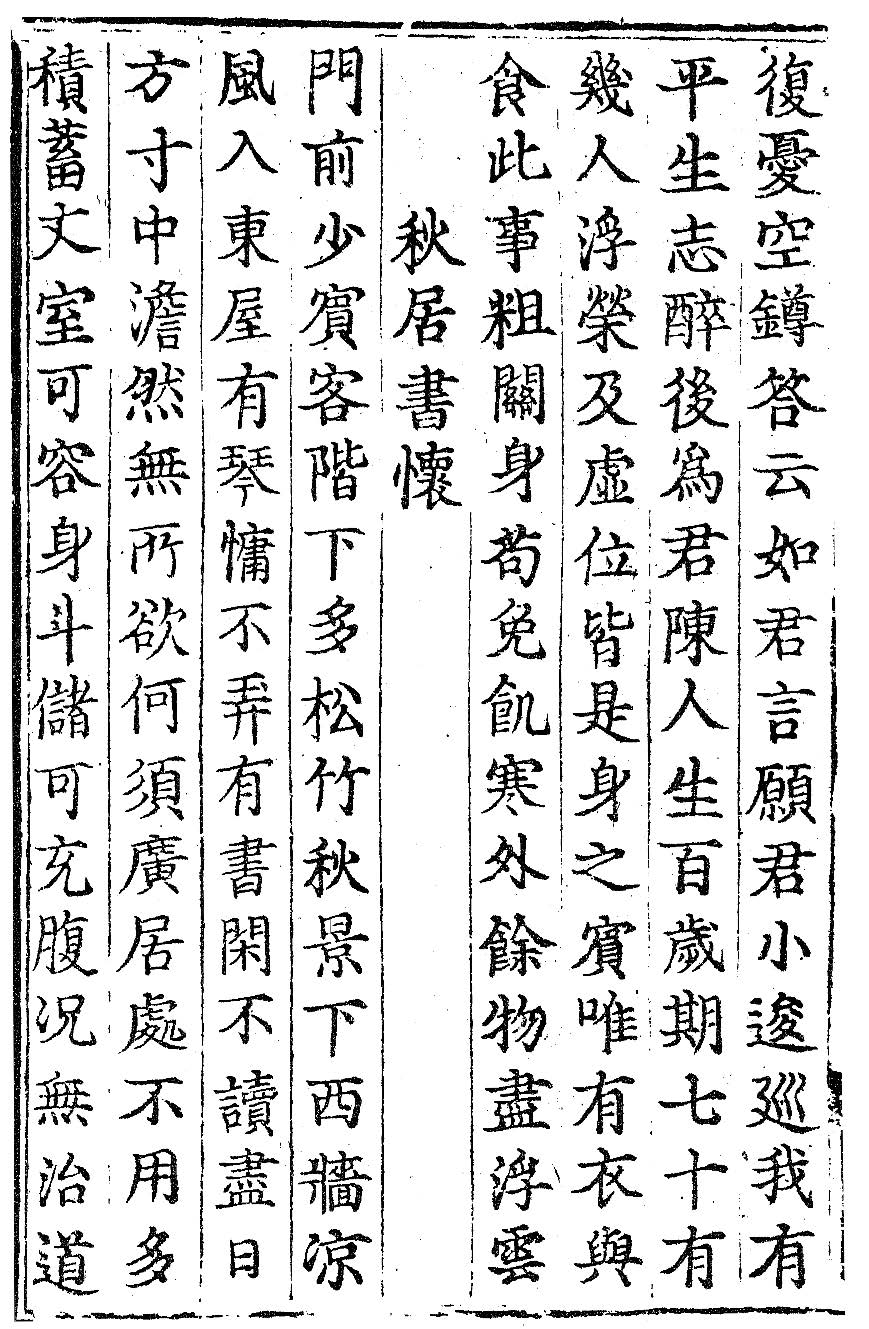 復憂空鐏答云如君言願君小逡巡我有
平生志醉後爲君陳人生百歲期七十有
幾人浮榮及虛位皆是身之賓唯有衣與
食此事粗關身苟免飢寒外餘物盡浮雲
秋居書懷
門前少賔客階下多松竹秋景下西牆凉
風入東屋有琴慵不弄有書閑不讀盡日
方寸中澹然無所欲何須廣居處不用多
積蓄丈室可容身斗儲可充腹况無治道